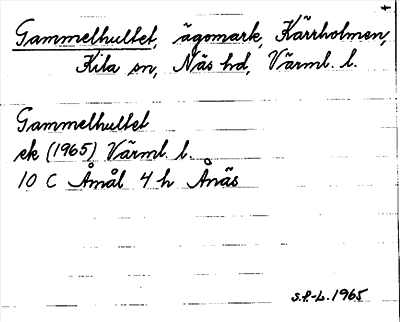 Gammelhultet, ägomark, Kärrholmen,
Kila sn, Näs hd, Värml. l.
Gammelhultet
ek (1965) Värml. l.
10 C Åmål 4 h Ånäs
S.F.-L. 1965